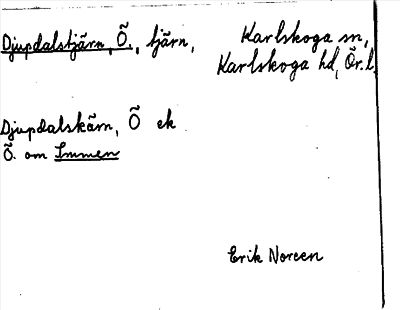 Djupdalstjärn, Ö., tjärn,
Karlskoga sn,
Karlskoga hd, Ör.l.
Djupdalskärn, Ö ek
Ö. om Immen
Erik Noreen